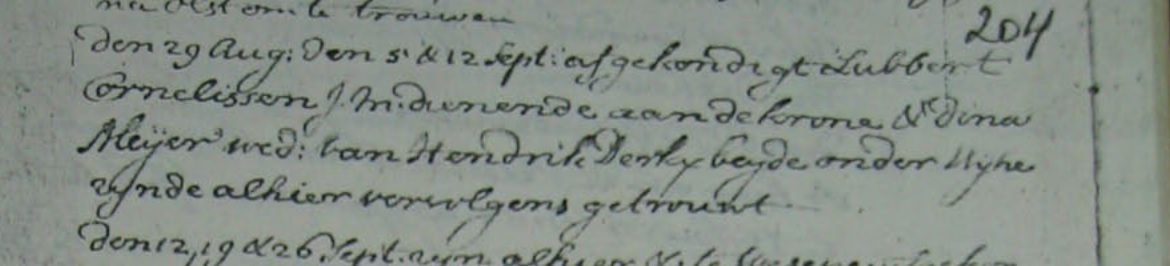 na Olst om te trouwen
204
den 29 Aug: den 5 & 12 Sept: afgekondigt Lubbert
Cornelissen J.M. dienende aan de krone & dina
Meijer wed: van Hendrik Derkx beyde onder Wyhe
zynde alhier vervolgens getrouwt
den 12, 19 & 26 Sept. zyn alhier & te